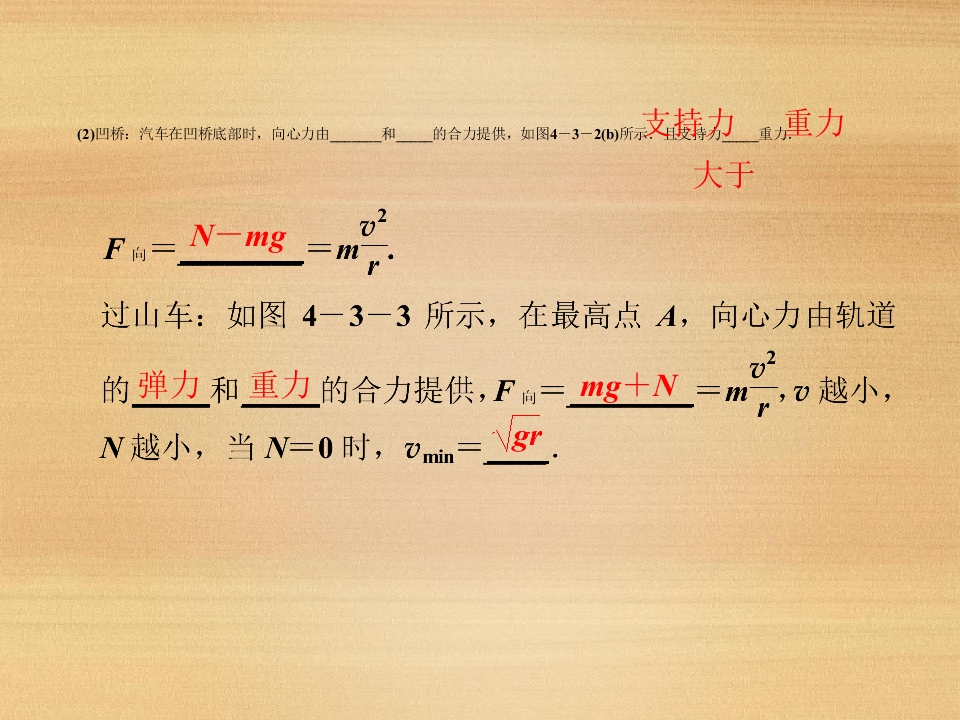 支持力 重力
(2)凹桥：汽车在凹桥底部时，向心力由_______和_____的合力提供，如图4－3－2(b)所示．且支持力_____重力．
大于
F向＝N－mg＝mv²/r.
过山车：如图 4－3－3 所示，在最高点 A，向心力由轨道
的弹力和重力的合力提供，F向＝mg＋N＝mv²/r，v 越小，
N 越小，当 N＝0 时，vmin＝√gr.